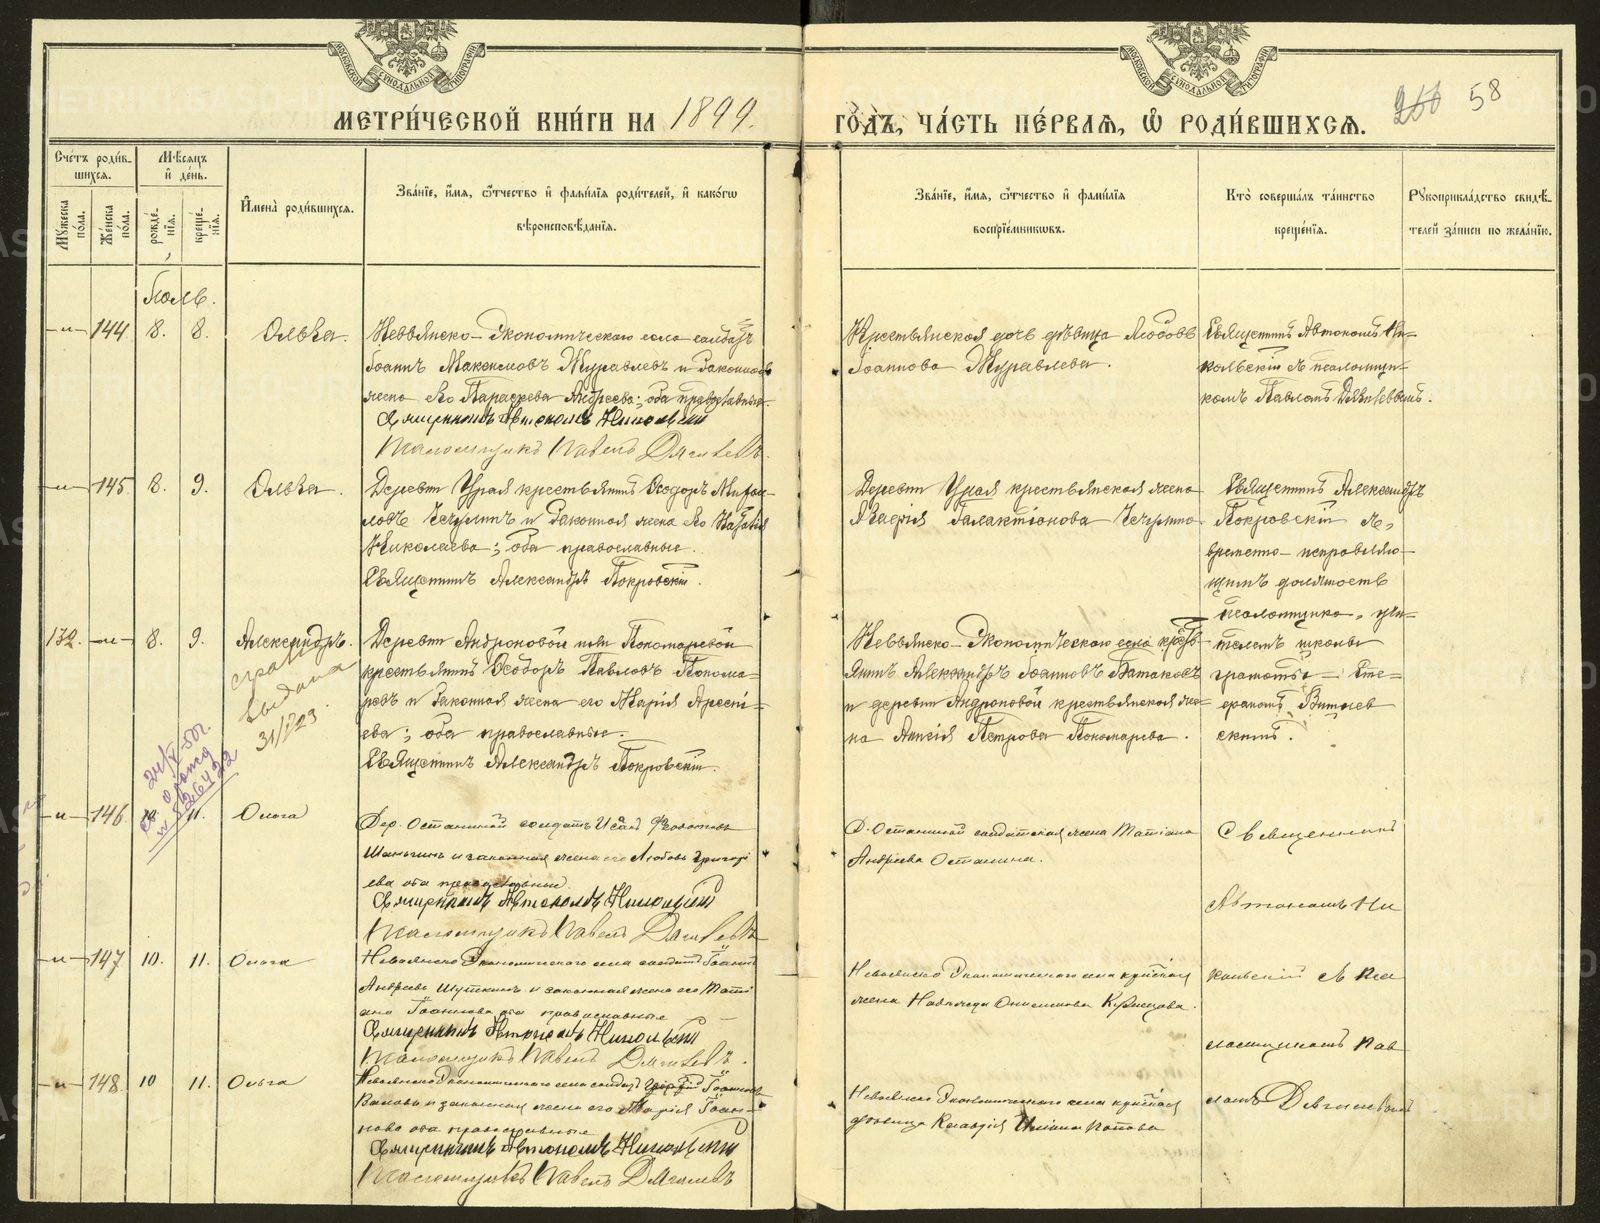 МЕТРИ́ЧЕСКОЙ КНИ́ГИ НА 1899.
ГО́ДЪ, ЧА́СТЬ ПЕ́РВАЯ, Ѡ РОДИ́ВШИХСЯ.
266 58
Сче́тъ роди́в-
шихся.
Мѣ́сяцъ
и҆ де́нь.
Му́жеска
по́ла.
Же́нска
по́ла.
рожде́-
нїя.
креще́-
нїя.
И҆мена̀ роди́вшихся.
Зва́нїе, и҆́мя, ѻ҆́тчество и҆ фами́лїя роди́телей, и҆ како́гѡ
вѣроисповѣ́данїя.
Зва́нїе, и҆́мя, ѻ҆́тчество и҆ фами́лїя
воспрїе́мниковъ.
Кто̀ соверша́лъ та́инство
креще́нїя.
Рꙋкоприкла́дство свидѣ́-
телей за́писи по жела́нїю.
Іюль.
144 8. 8. Ольга.
Невьянско-Экономическаго села солдатъ
Іоаннъ Максимовъ Журавлевъ и законная
жена его Параскева Андреева; оба православные.
Священникъ Автономъ Никольскій
Псаломщикъ Павелъ Дягилевъ.
Крестьянская дочь дѣвица Любовь
Іоаннова Журавлева.
Священникъ Автономъ Ни-
кольскій съ псаломщи-
комъ Павломъ Дягилевымъ.
145 8. 9. Ольга.
Деревни Урая крестьянинъ Ѳеодоръ Миро-
новъ Чечулинъ и законная жена его
Николаева; оба православные.
Священникъ Александръ Покровскій.
Деревни Урая крестьянская жена
Галактіонова Чечулина
Священникъ Александръ
Покровскій съ
временно-исправляю-
щимъ должность
псаломщика, учи-
телемъ школы
грамоты Сте-
фаномъ
скимъ.
132. 8. 9. Александръ.
Деревни Андроновой или Пономаревой
крестьянинъ Ѳеодоръ Павловъ Понома-
ревъ и законная жена его Марія Арсені-
ева; оба православные.
Священникъ Александръ Покровскій.
Невьянско-Экономическаго села кресть-
янинъ Александръ Іоанновъ Батаковъ
и деревни Андроновой крестьянская же-
на Анисія Петрова Пономарева.
выдана
31/723.
24/V-50г.
146. 11. Ольга
Дер. Останиной солдатъ Исаакъ
Шаньгинъ и законная жена его Любовь Григорі
ева оба православные
Священникъ Автономъ Никольскій
Псаломщикъ Павелъ Дягилевъ
Д. Останиной солдатская жена Татіана
Андреева Останина.
Священникъ
Автономъ Ни
кольскій съ пса
ломщикомъ Пав
ломъ Дягилевымъ
147 10. 11. Ольга
Невьянско Экономическаго села солдатъ Іоаннъ
Андреевъ Шуткинъ и законная жена его Тати
ана Іоаннова оба православные
Священникъ Автономъ Никольскій
Псаломщикъ Павелъ Дягилевъ.
Невьянско Экономическаго села крестьянская
жена Надежда Онисимова
148. 10 11. Ольга
Невьянско Экономическаго села солдатъ
и законная жена его Марія Іоан-
нова оба православные
Священникъ Автономъ Никольскій
Псаломщикъ Павелъ Дягилевъ
Невьянско Экономическаго села крестьянская
дѣвица Клавдія Попова